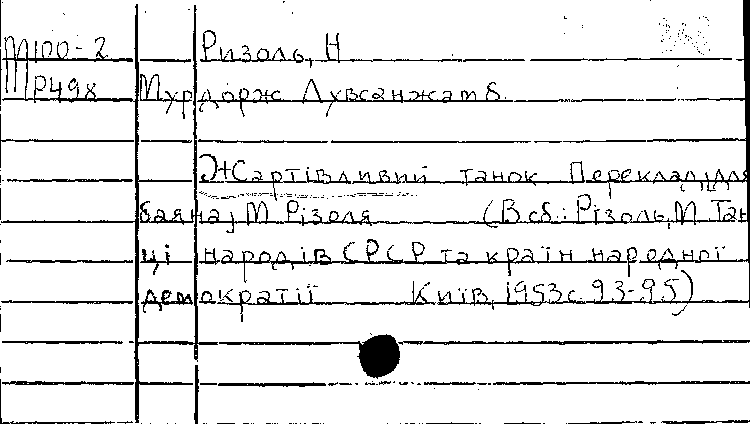 М100-2 Ризоль, Н
Р49х Мурдорж Лувсанжамб.
Жартівливий танок Переклад для
баяна М Різоля (В сб.: Різоль, М Тан
ці народів СРСР та країн народної
демократії Київ, 1953 с. 93-95)